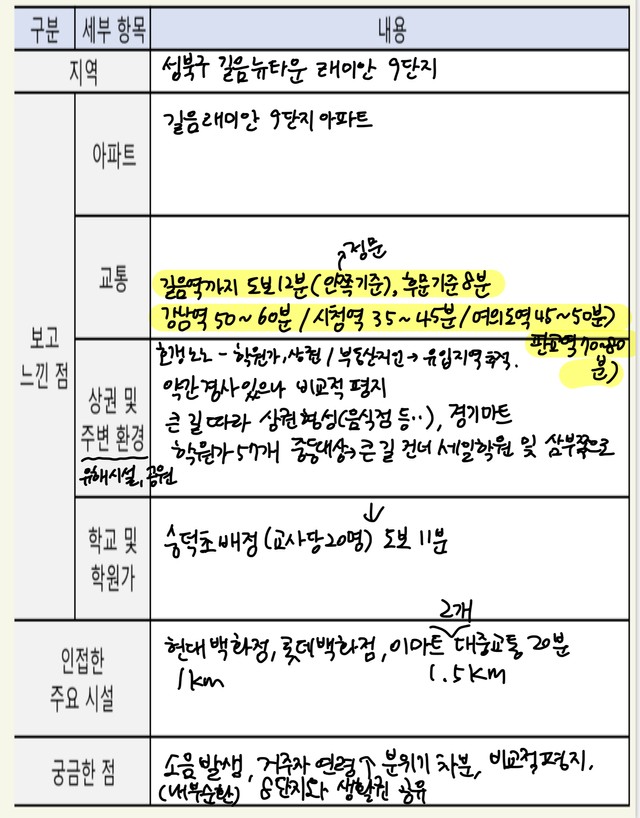 구분 세부 항목 내용
지역 성북구 길음뉴타운 래미안 9단지
보고 느낀 점
아파트 길음래미안 9단지 아파트
교통
정문
길음역까지 도보 12분(안쪽기준), 후문기준 8분
강남역 50~60분 / 시청역 35~45분 / 여의도역 45~50분)
판교역 70~80분)
상권 및 주변 환경
유해시설, 공원
호갱노노 - 학원가, 상권 / 부동산지인 → 유입지역 분석.
약간 경사 있으나 비교적 평지
큰 길 따라 상권 형성(음식점 등..), 경기마트
학원가 57개 중등대상→ 큰 길 건너 세일학원 및 삼부쪽으로
학교 및 학원가
숭덕초 배정 (교사당 20명) 도보 11분
인접한 주요 시설
2개
현대백화점, 롯데백화점, 이마트 대중교통 20분
1km 1.5km
궁금한 점
소음 발생, 거주자 연령↑ 분위기 차분, 비교적 평지.
(내부순환) 8단지와 생활권 공유